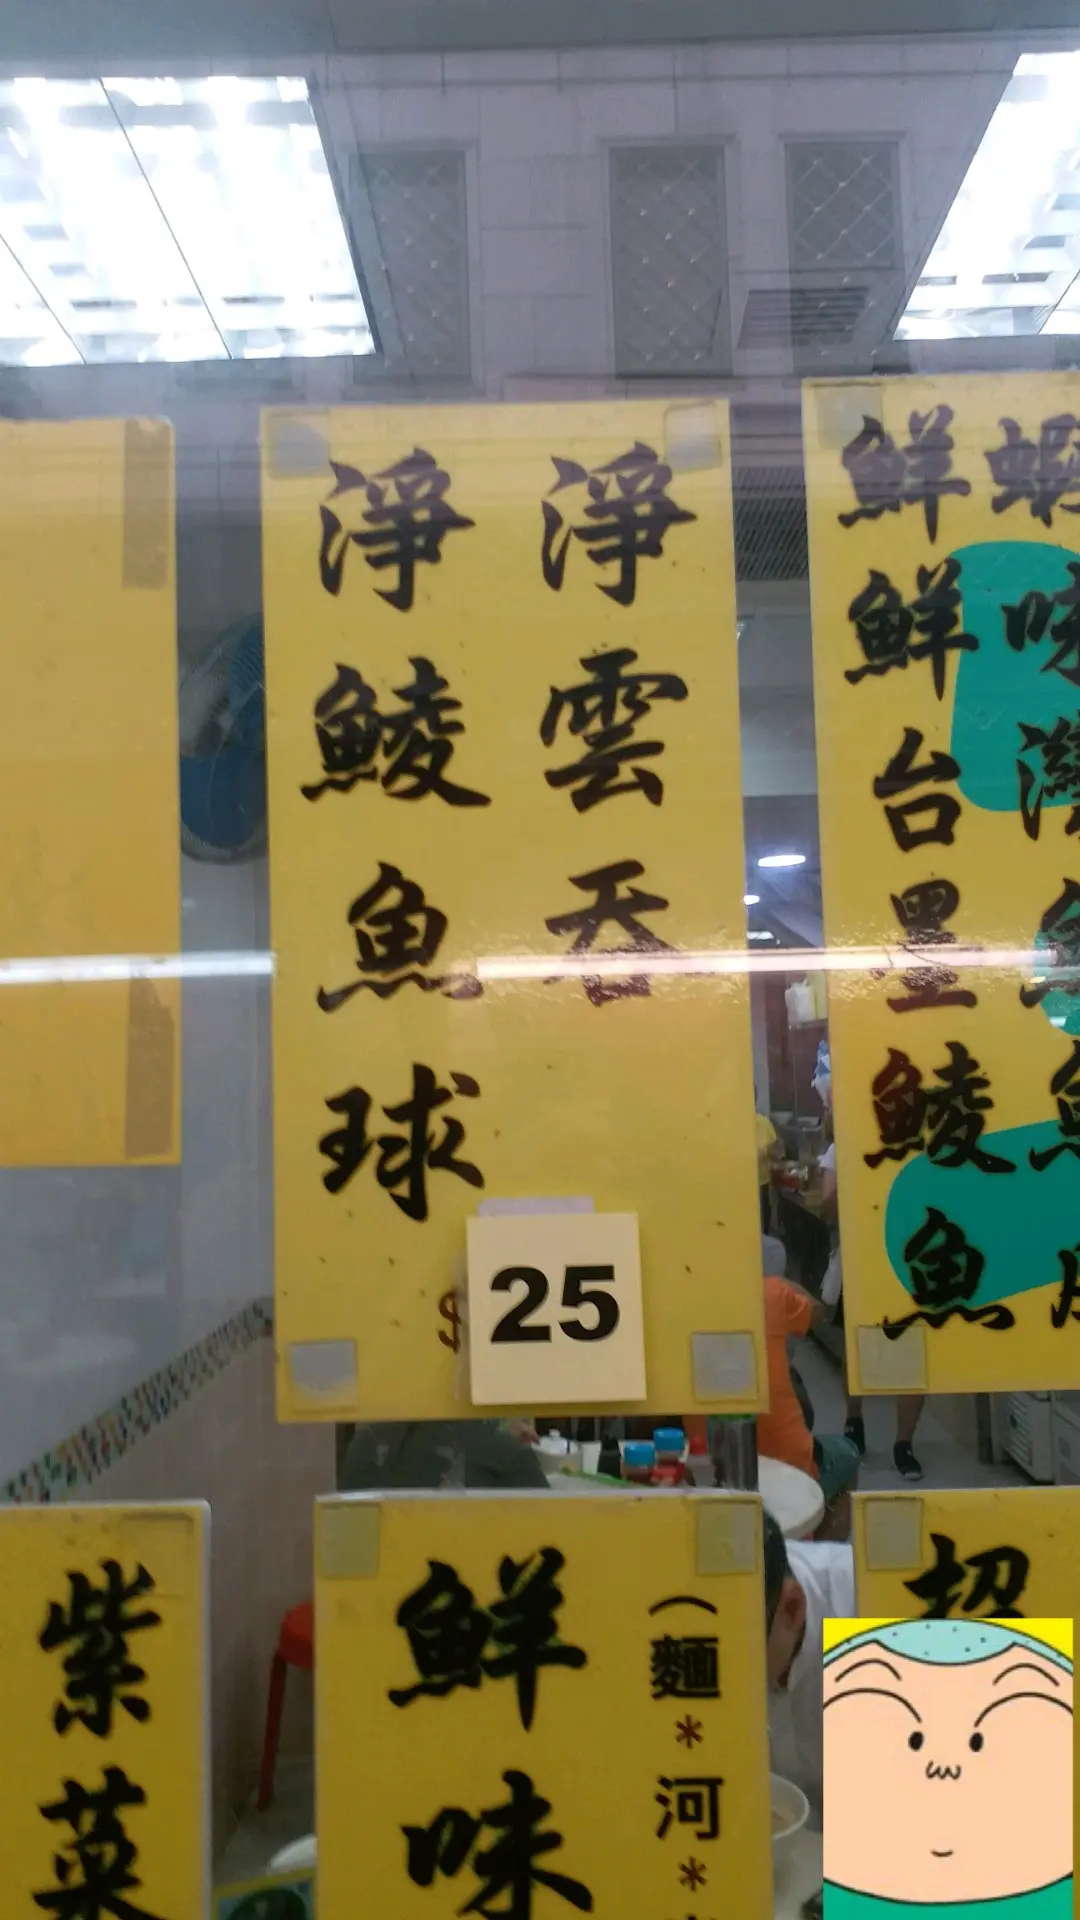 淨雲吞
淨鯪魚球
$25
鮮蝦
鮮味
台灣
墨魚
鯪魚
魚
紫菜
鮮味
(麵*河*